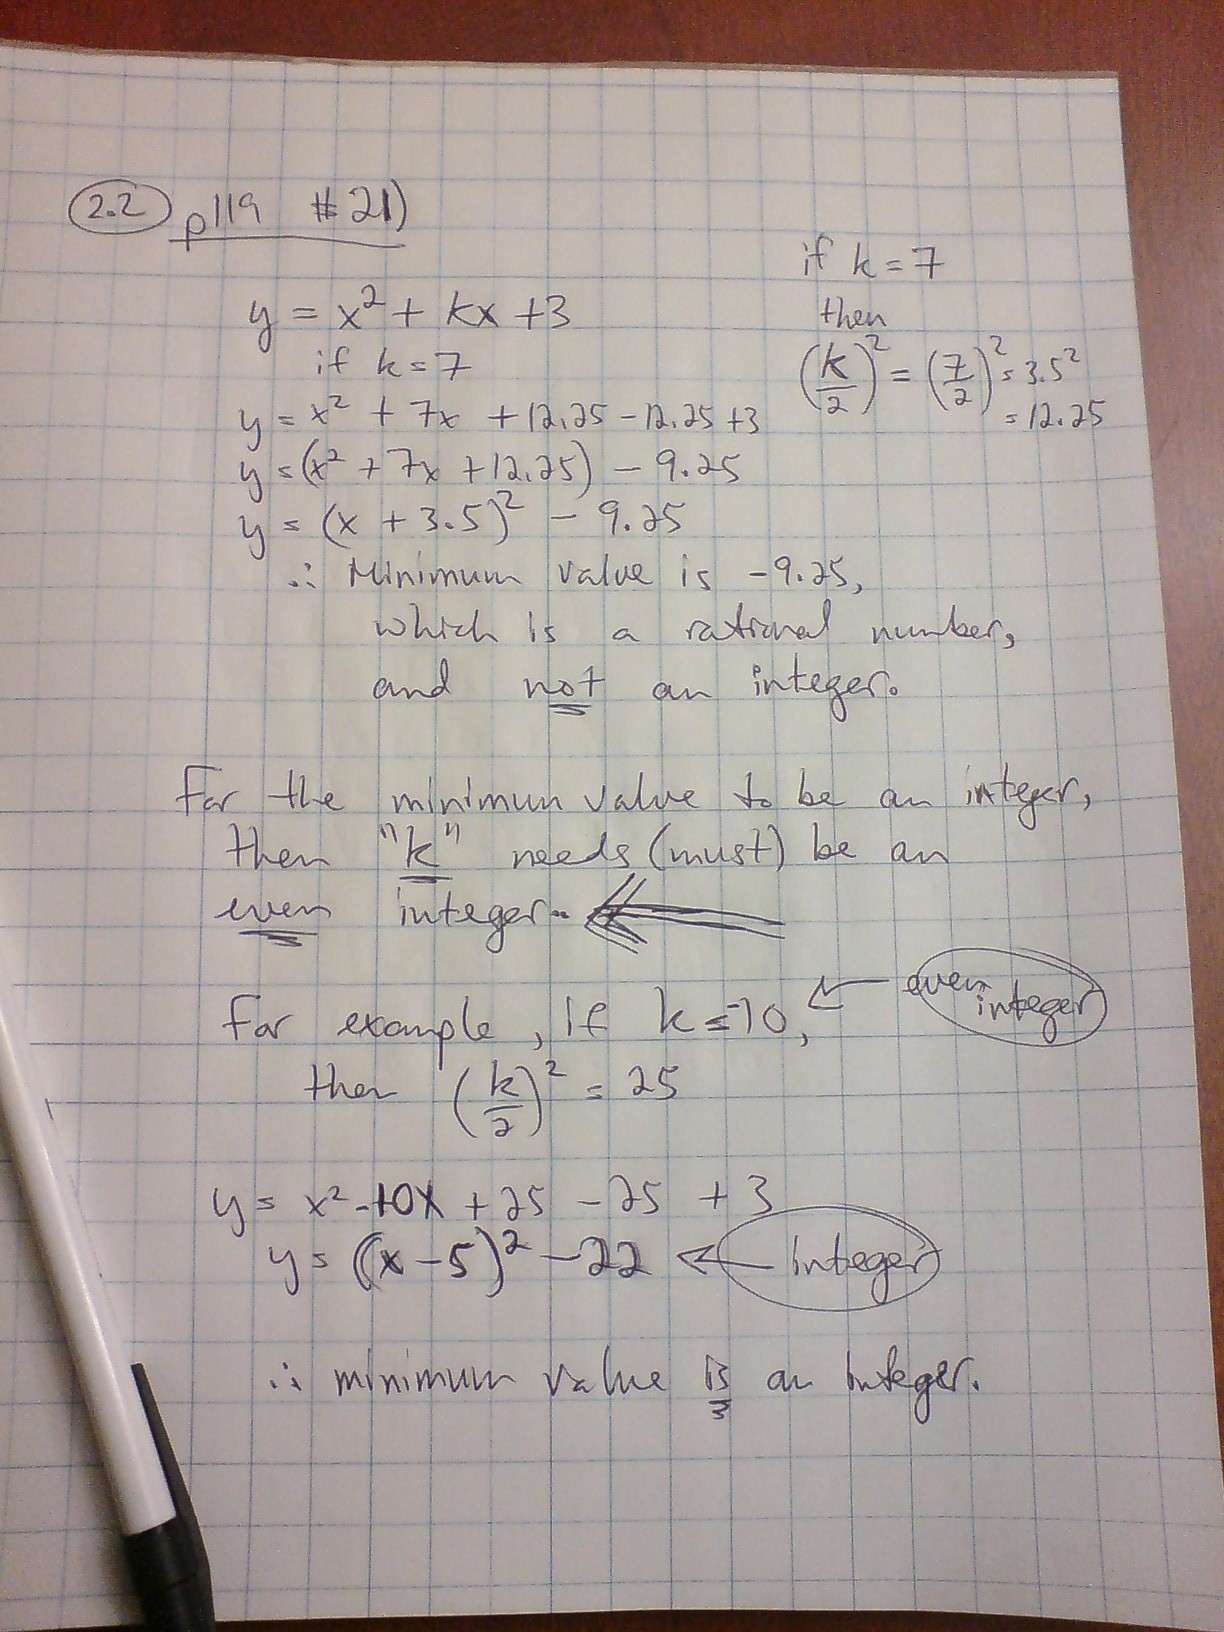 2.2 p119 #21)
y = x² + kx + 3
if k = 7
y = x² + 7x + 12.25 - 12.25 + 3
y = (x² + 7x + 12.25) - 9.25
y = (x + 3.5)² - 9.25
∴ Minimum value is -9.25,
which is a rational number,
and not an integer.
if k = 7
then
(k/2)² = (7/2)² = 3.5²
= 12.25
For the minimum value to be an integer,
then "k" needs (must) be an
even integer.
For example, if k = -10, ← even integer
then (k/2)² = 25
y = x² - 10x + 25 - 25 + 3
y = (x - 5)² - 22 ← integer
∴ minimum value is an integer.